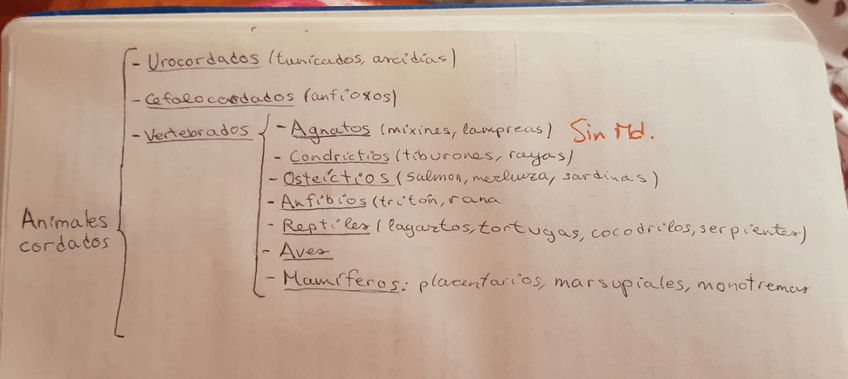 - Urocordados (tunicados, arcidias)
- Cefalocordados (anfioxos)
- Vertebrados
- Agnatos (mixines, lampreas) Sin Md.
- Condrictios (tiburones, rayas)
- Osteíctios (salmon, merluza, sardinas)
- Anfibios (tritón, rana
- Reptiles (lagartos, tortugas, cocodrilos, serpientes)
- Aves
- Mamíferos: placentarios, marsupiales, monotremas
Animales
cordados